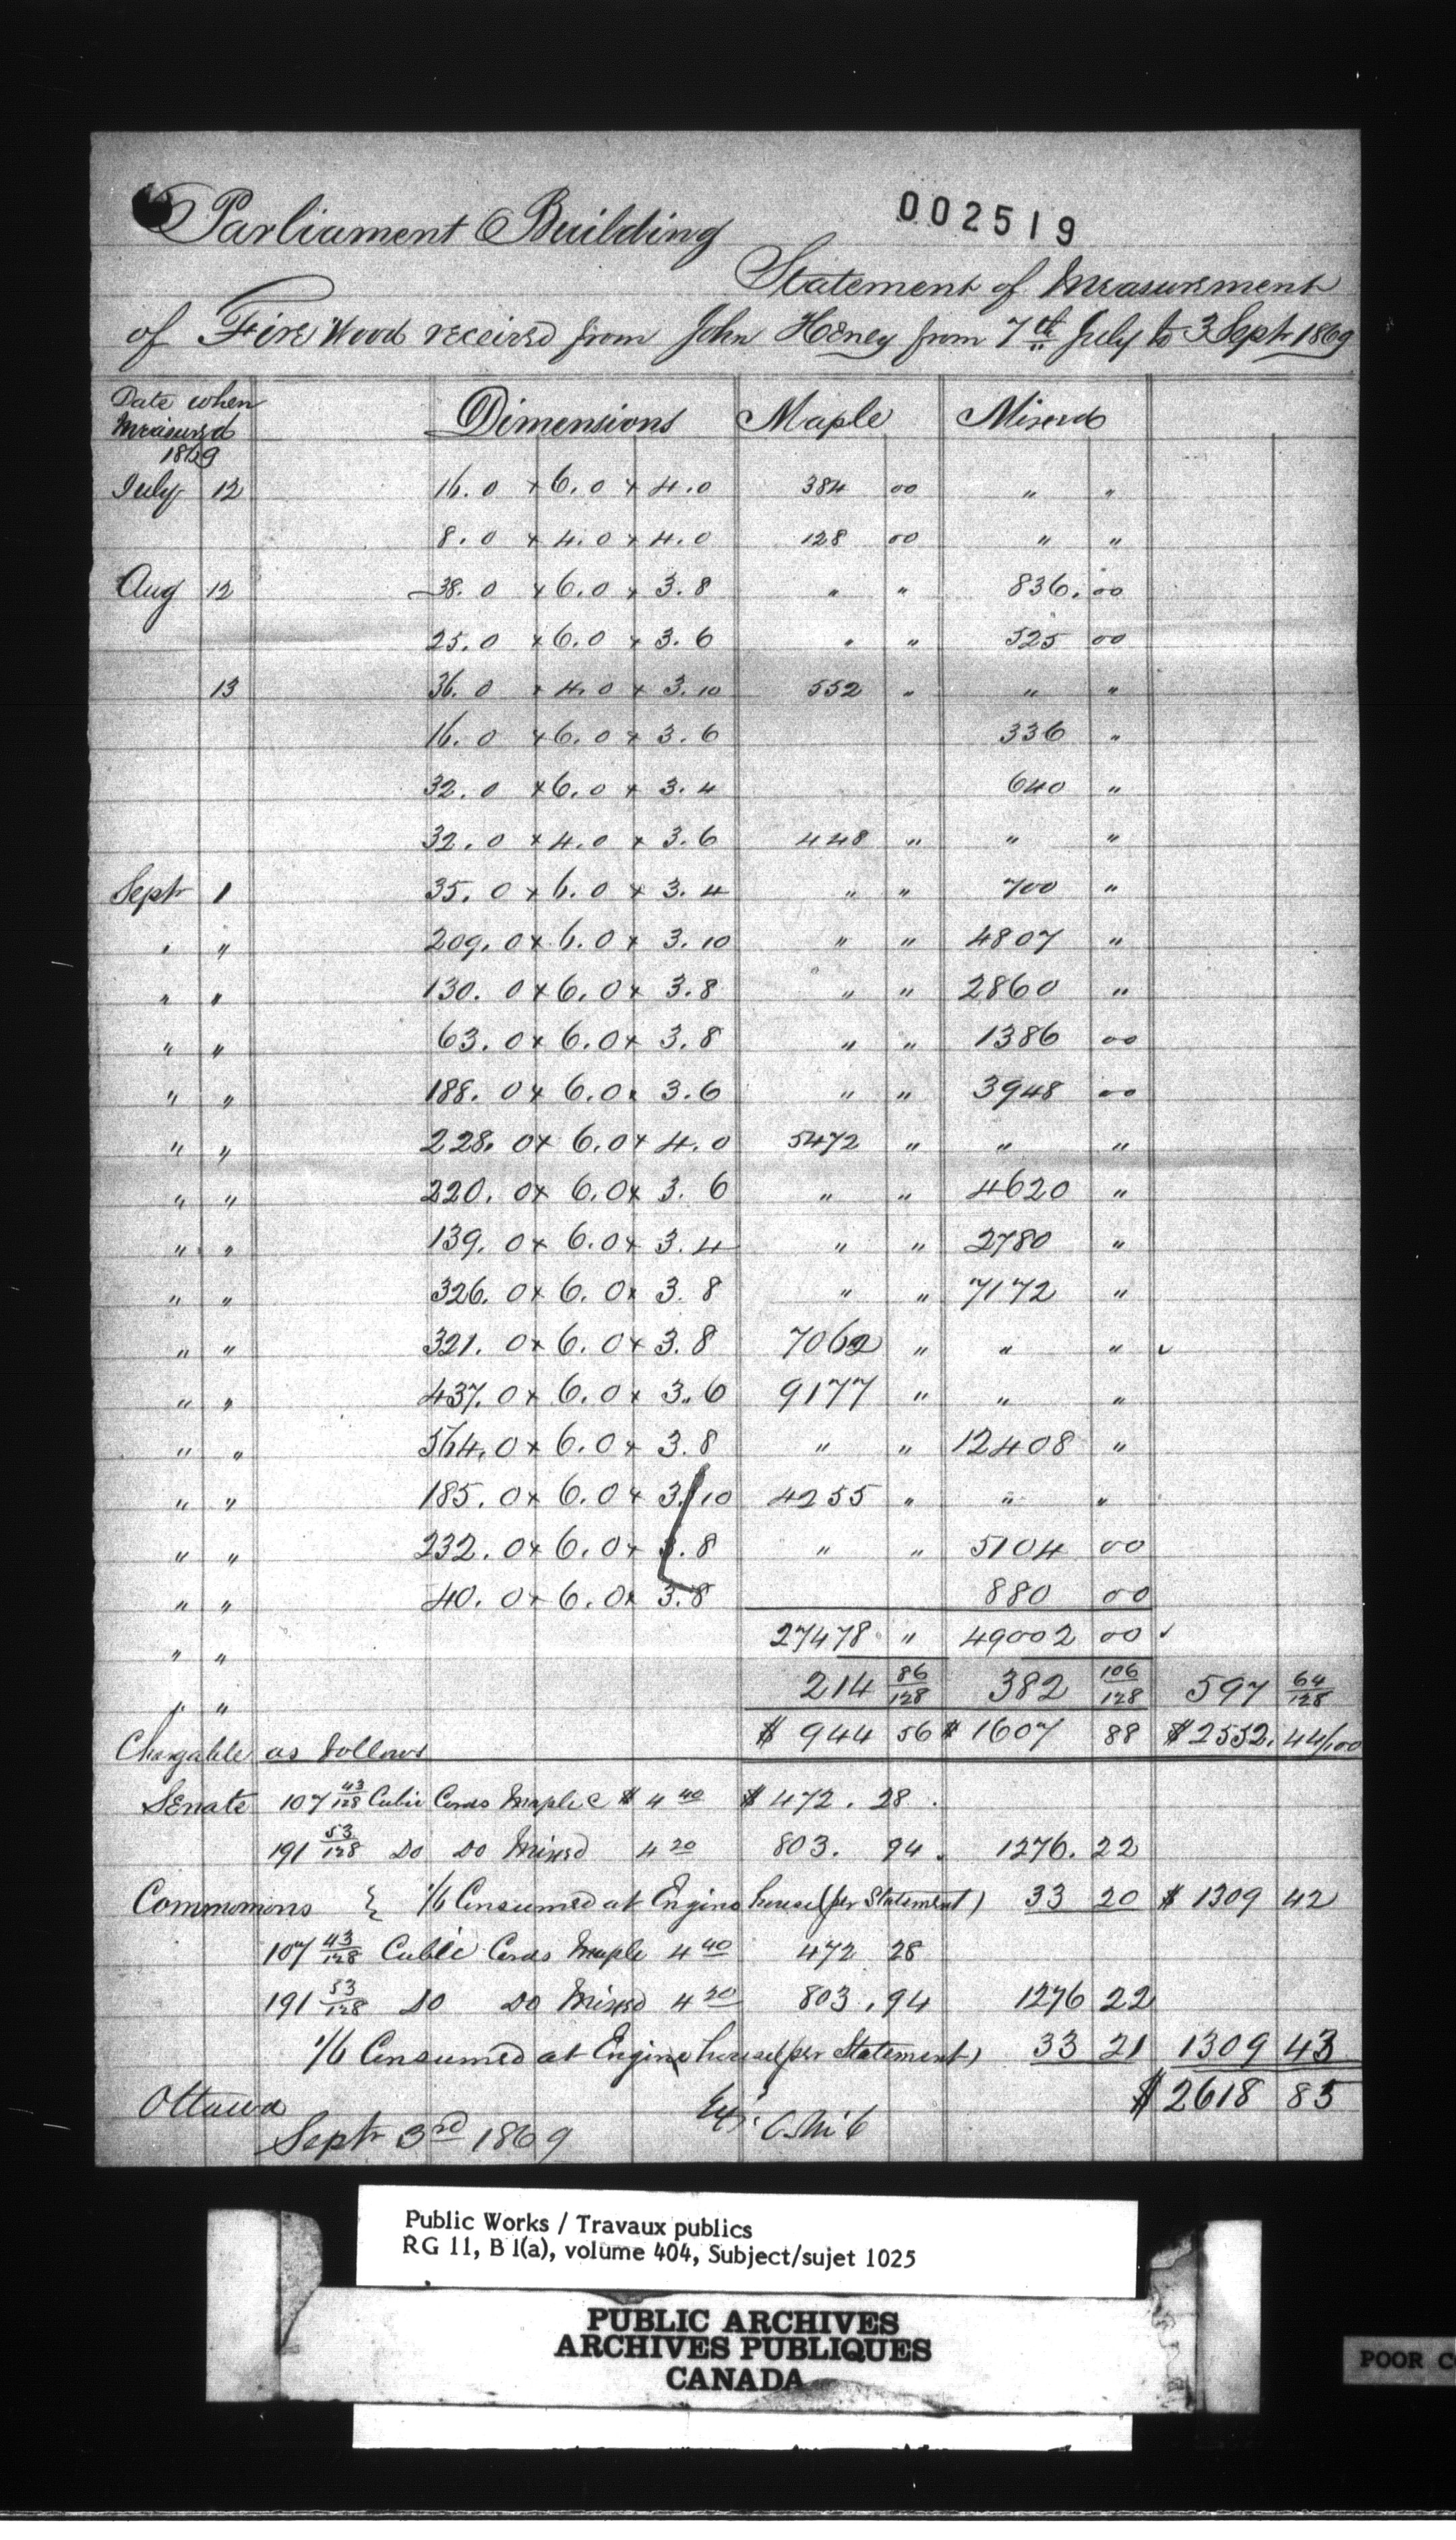 Parliament Building
002519
Statement of Measurement
of Fire Wood received from John Heney from 7th July to 3 Sept 1869
Date when Measured 1869 Dimensions Maple Mixed
July 12 16.0 x 6.0 x 4.0 384 00 " "
8.0 x 4.0 x 4.0 128 00 " "
Aug 12 38.0 x 6.0 x 3.8 " " 836. 00
25.0 x 6.0 x 3.6 " " 525 00
13 36.0 x 4.0 x 3.10 552 " " "
16.0 x 6.0 x 3.6 336 "
32.0 x 6.0 x 3.4 640 "
32.0 x 4.0 x 3.6 448 " " "
Sept 1 35.0 x 6.0 x 3.4 " " 700 "
" " 209.0 x 6.0 x 3.10 " " 4807 "
" " 130.0 x 6.0 x 3.8 " " 2860 "
" " 63.0 x 6.0 x 3.8 " " 1386 00
" " 188.0 x 6.0 x 3.6 " " 3948 00
" " 228.0 x 6.0 x 4.0 5472 " " "
" " 220.0 x 6.0 x 3.6 " " 4620 "
" " 139.0 x 6.0 x 3.4 " " 2780 "
" " 326.0 x 6.0 x 3.8 " " 7172 "
" " 321.0 x 6.0 x 3.8 7062 " " "
" " 437.0 x 6.0 x 3.6 9177 " " "
" " 564.0 x 6.0 x 3.8 " " 12408 "
" " 185.0 x 6.0 x 3.10 4255 " " "
" " 232.0 x 6.0 x 3.8 " " 5104 00
" " 40.0 x 6.0 x 3.8 880 00
" " 27478 " 49002 00
" " 214 86/128 382 106/128 597 64/128
$ 944 56 $ 1607 88 $ 2552. 44/100
Chargable as follows
Senate 107 43/128 Cubic Cords Maple @ $ 4 40 $ 472. 28
191 53/128 Do Do Mixed 4 20 803. 94. 1276. 22
Commmons } 1/6 Consumed at Engine house (per Statement) 33 20 $ 1309 42
107 43/128 Cubic Cords Maple 4 40 472 28
191 53/128 Do Do Mixed 4 20 803. 94 1276 22
1/6 Consumed at Engine house (per Statement) 33 21 1309 43
$ 2618 85
Ottawa
Sept 3rd 1869
Public Works / Travaux publics
RG 11, B 1(a), volume 404, Subject/sujet 1025
PUBLIC ARCHIVES
ARCHIVES PUBLIQUES
CANADA
POOR